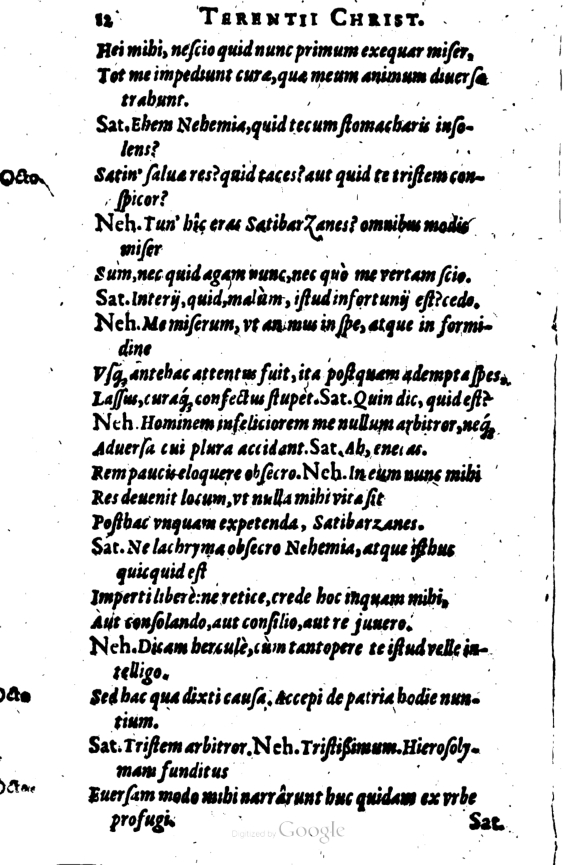 12 TERENTII CHRIST.
Hei mihi, nescio quid nunc primum exequar miser,
Tot me impediunt curæ, quæ meum animum diuersa
trahunt.
Sat. Ehem Nehemia, quid tecum stomacharis inso-
lens?
Octo
Satin' saluæ res? quid taces? aut quid te tristem con-
spicor?
Neh. Tun' hîc eras Satibarzanes? omnibus modis
miser
Sum, nec quid agam nunc, nec quò me vertam scio.
Sat. Interij, quid, malùm, istud infortunij est? cedo.
Neh. Me miserum, vt animus in spe, atque in formi-
dine
Vsq₃, antehac attentus fuit, ita postquam adempta spes,
Lassus, curaq́₃, confectus stupet. Sat. Quin dic, quid est?
Neh. Hominem infeliciorem me nullum arbitror, neq́₃
Aduersa cui plura accidant. Sat. Ah, enecas.
Rem paucis eloquere obsecro. Neh. In eum nunc mihi
Res deuenit locum, vt nulla mihi vita sit
Posthac vnquam expetenda, Satibarzanes.
Sat. Ne lachryma obsecro Nehemia, atque isthuc
quicquid est
Imperti liberè: ne retice, crede hoc inquam mihi,
Aut consolando, aut consilio, aut re juuero.
Neh. Dicam herculè, cùm tantopere te istud velle in-
telligo.
Octo
Sed hac qua dixti causa. Accepi de patria hodie nun-
tium.
Sat. Tristem arbitror. Neh. Tristißimum. Hierosoly-
mam funditus
Euersam modo mihi narrârunt huc quidam ex vrbe
profugi.
Sat.
Digitized by Google